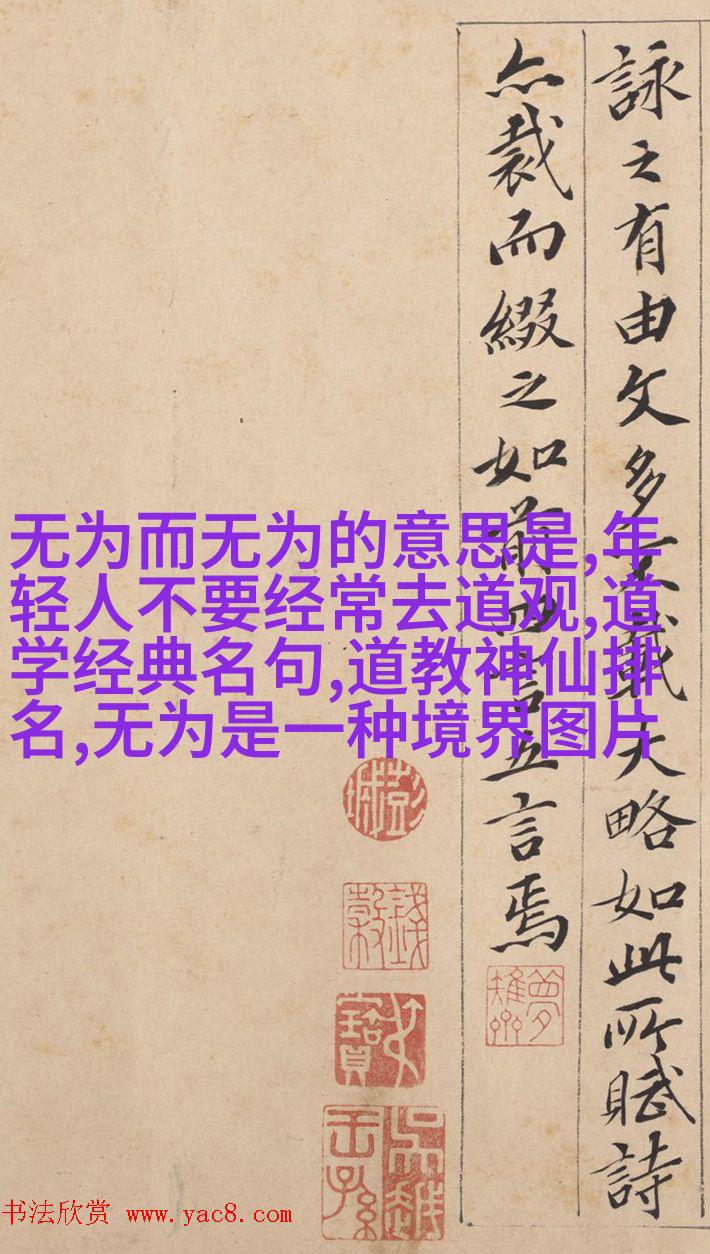 詠之有由文多不載大略如此所賦詩
亦裁而綴之如前四言五言焉
无为而无为的意思是,年
轻人不要经常去道观,道
学经典名句,道教神仙排
名,无为是一种境界图片
彭城
錢穀
吳越王孫
书法欣赏 www.yac8.com